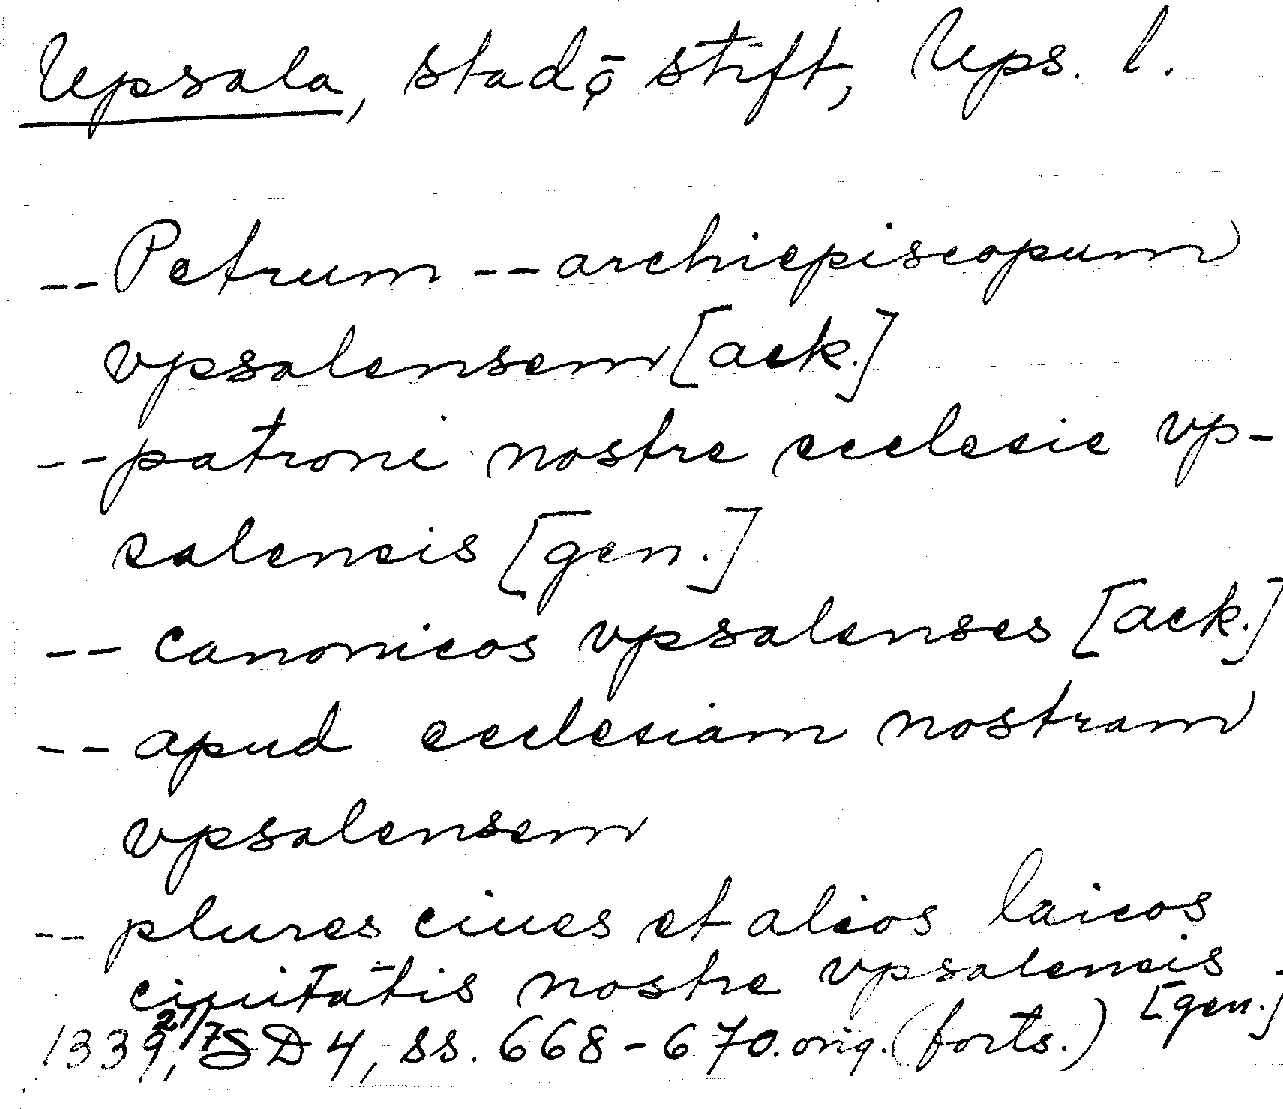 Upsala, stad o stift, Ups. l.
-- Petrum -- archiepiscopum
vpsalensem [ack.]
-- patroni nostre ecclesie vp-
salensis [gen.]
-- canonicos vpsalenses [ack.]
-- apud ecclesiam nostram
vpsalensem
-- plures ciues et alios laicos
ciuitatis nostre vpsalensis
[gen.]
1339 21/7, SD 4, ss. 668-670. orig. (forts.)